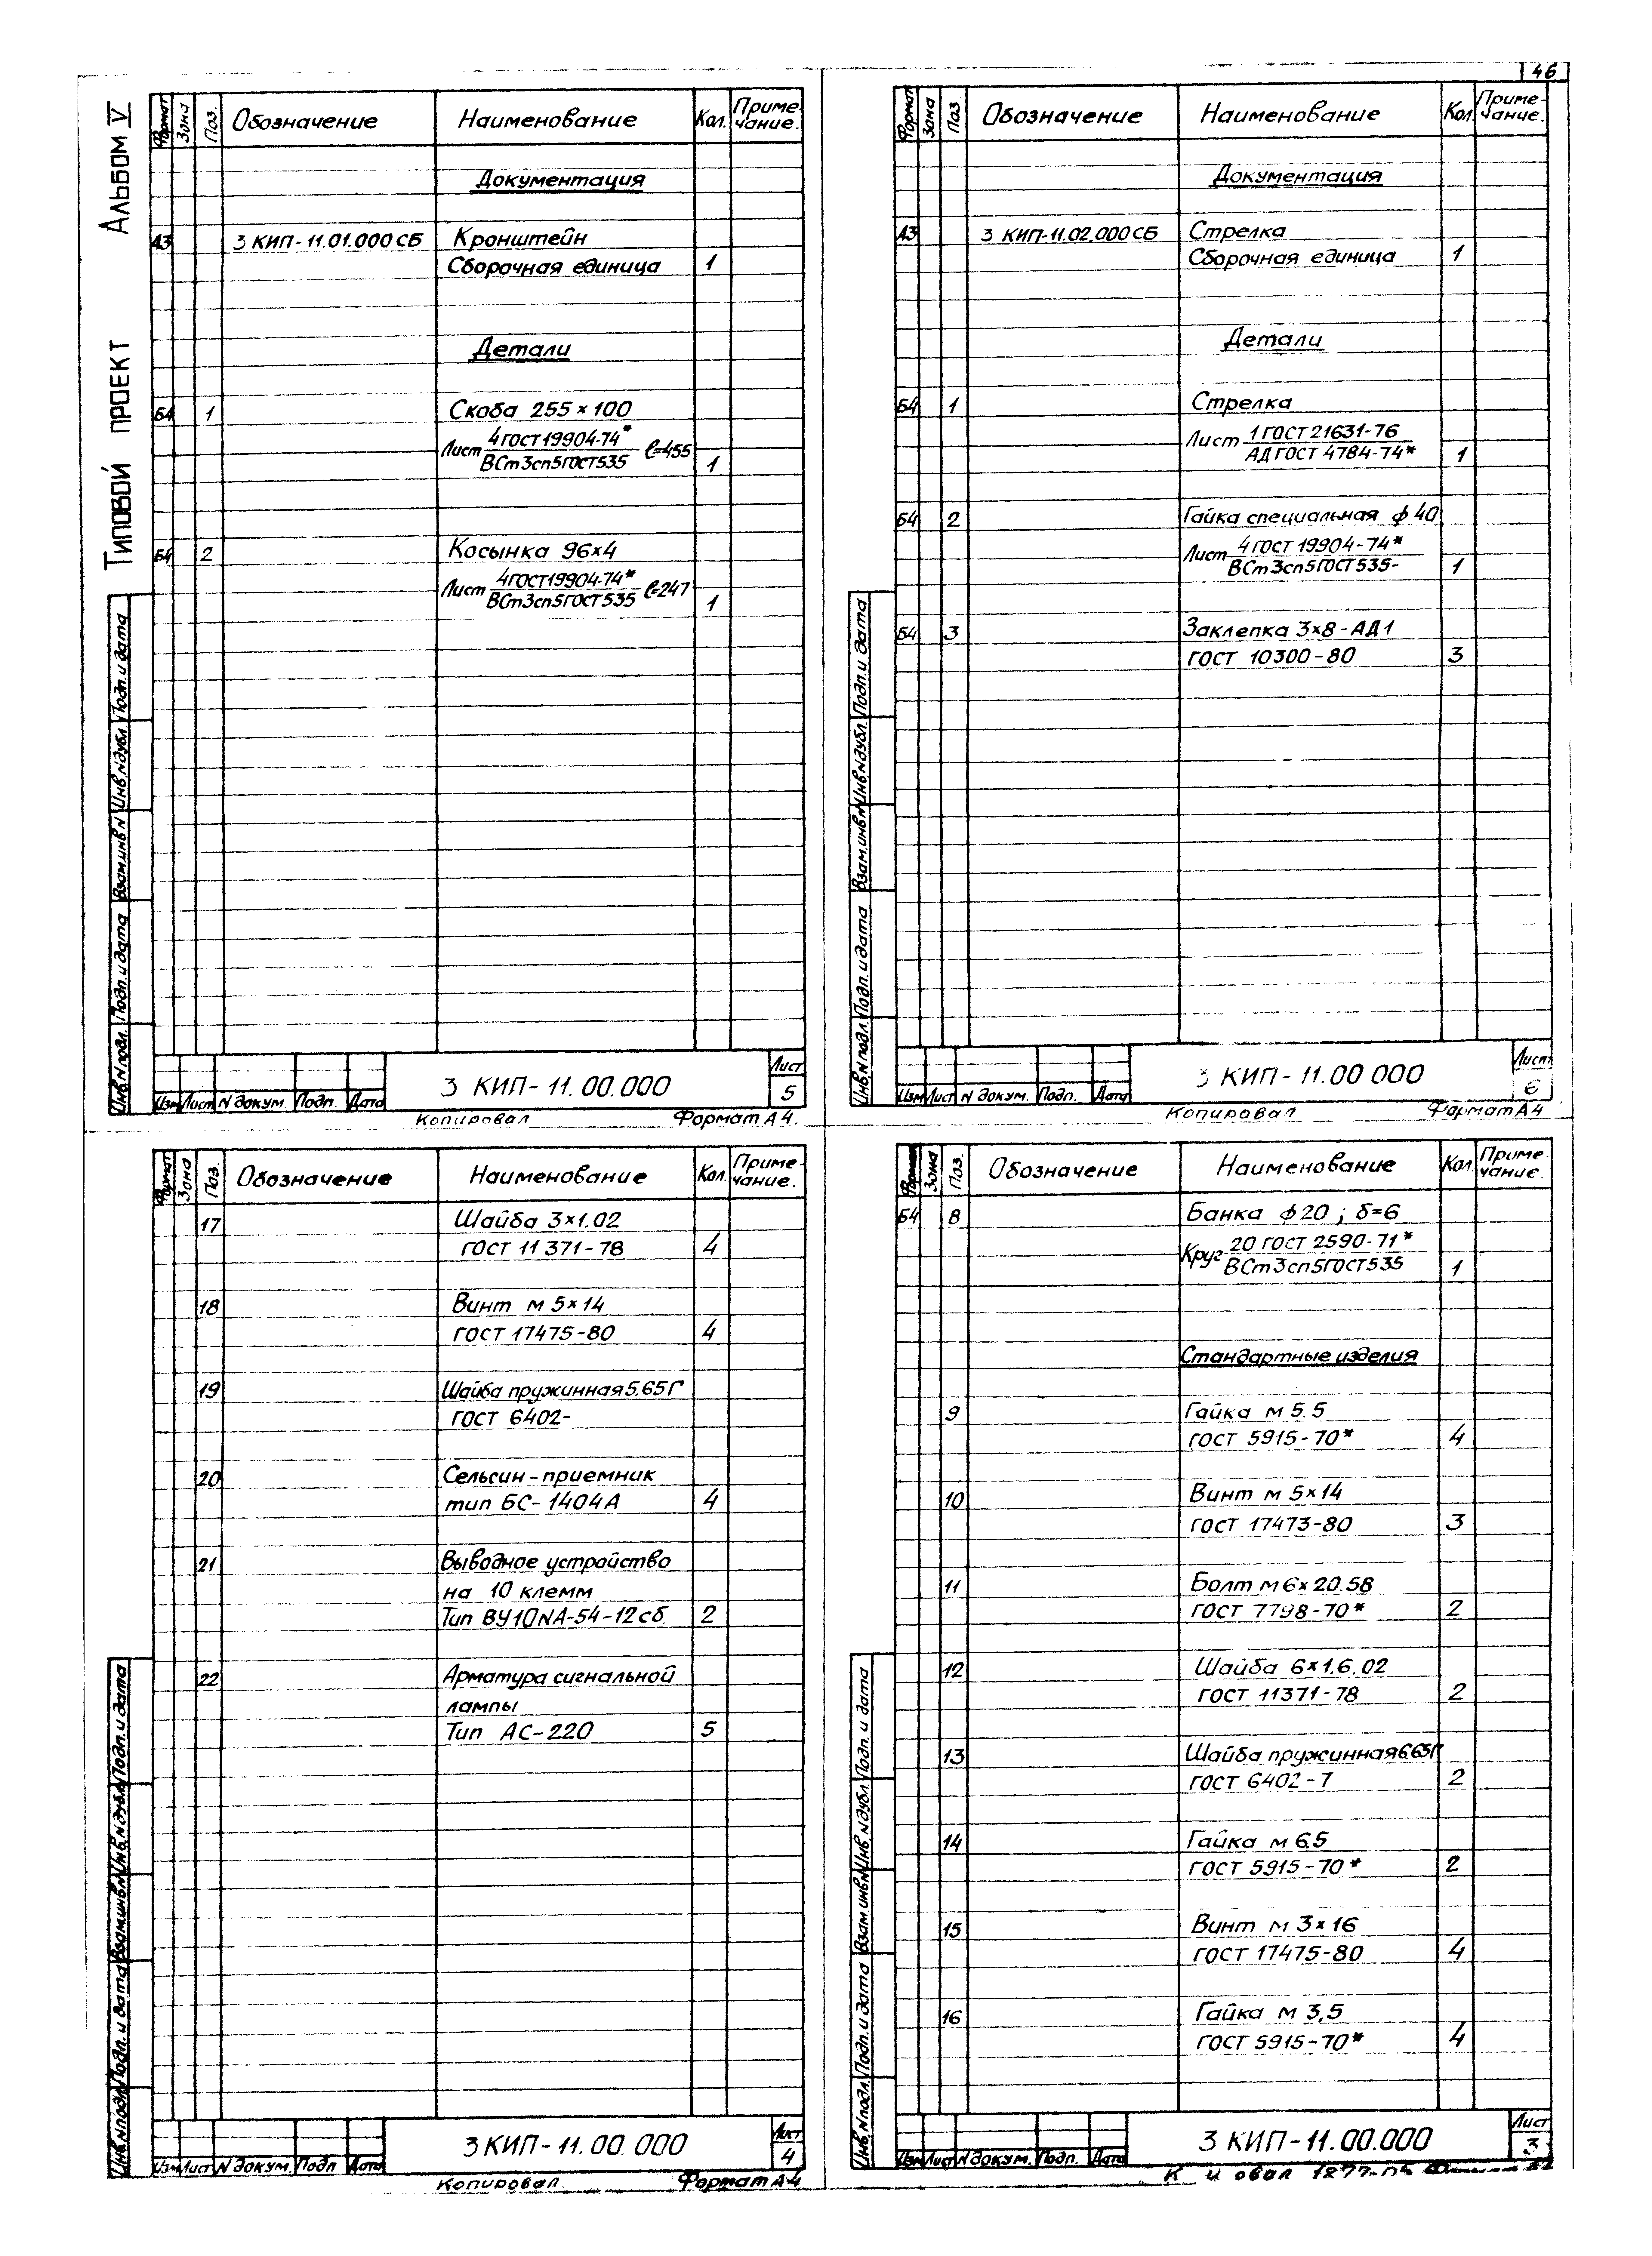 46
Альбом V
Типовой проект
Формат Зона Поз. Обозначение Наименование Кол. Приме-чание.
Документация
А3 3 КИП-11.01.000СБ Кронштейн
Сборочная единица 1
Детали
Б4 1 Скоба 255×100
Лист 4 ГОСТ 19904-74* / ВСт3сп5ГОСТ535 ℓ=455
1
Б4 2 Косынка 96×4
Лист 4ГОСТ19904-74* / ВСт3сп5ГОСТ535 ℓ=247
1
Инв.N подл. Подп. и дата Взам.инв.N Инв.N дубл. Подп. и дата
Изм Лист N докум. Подп. Дата
3 КИП-11.00.000
Лист
5
Копировал Формат А4.
Формат Зона Поз. Обозначение Наименование Кол. Приме-чание.
Документация
А3 3 КИП-11.02.000СБ Стрелка
Сборочная единица 1
Детали
Б4 1 Стрелка
Лист 1 ГОСТ 21631-76 / АД ГОСТ 4784-74* 1
Б4 2 Гайка специальная ϕ 40
Лист 4 ГОСТ 19904-74* / ВСт3сп5ГОСТ535- 1
Б4 3 Заклепка 3×8-АД1
ГОСТ 10300-80 3
Инв.N подл. Подп. и дата Взам.инв.N Инв.N дубл. Подп. и дата
Изм Лист N докум. Подп. Дата
3 КИП-11.00 000
Лист
6
Копировал Формат А4
Формат Зона Поз. Обозначение Наименование Кол. Приме-чание.
17 Шайба 3×1.02
ГОСТ 11371-78 4
18 Винт м 5×14
ГОСТ 17475-80 4
19 Шайба пружинная 5.65Г
ГОСТ 6402-
20 Сельсин-приемник
тип БС-1404А 4
21 Выводное устройство
на 10 клемм
Тип ВУ10NА-54-12сб. 2
22 Арматура сигнальной
лампы
Тип АС-220 5
Инв.N подл. Подп. и дата Взам.инв.N Инв.N дубл. Подп. и дата
Изм Лист N докум. Подп Дата
3 КИП-11.00.000
Лист
4
Копировал Формат А4
Формат Зона Поз. Обозначение Наименование Кол. Приме-чание.
Б4 8 Банка ϕ20 ; δ=6
Круг 20 ГОСТ 2590-71* / ВСт3сп5ГОСТ535 1
Стандартные изделия
9 Гайка м 5.5
ГОСТ 5915-70* 4
10 Винт м 5×14
ГОСТ 17473-80 3
11 Болт м6×20.58
ГОСТ 7798-70* 2
12 Шайба 6×1.6.02
ГОСТ 11371-78 2
13 Шайба пружинная 6.65Г
ГОСТ 6402-7 2
14 Гайка м 6.5
ГОСТ 5915-70* 2
15 Винт м 3×16
ГОСТ 17475-80 4
16 Гайка м 3,5
ГОСТ 5915-70* 4
Инв.N подл. Подп. и дата Взам.инв.N Инв.N дубл. Подп. и дата
Изм Лист N докум. Подп. Дата
3 КИП-11.00.000
Лист
3